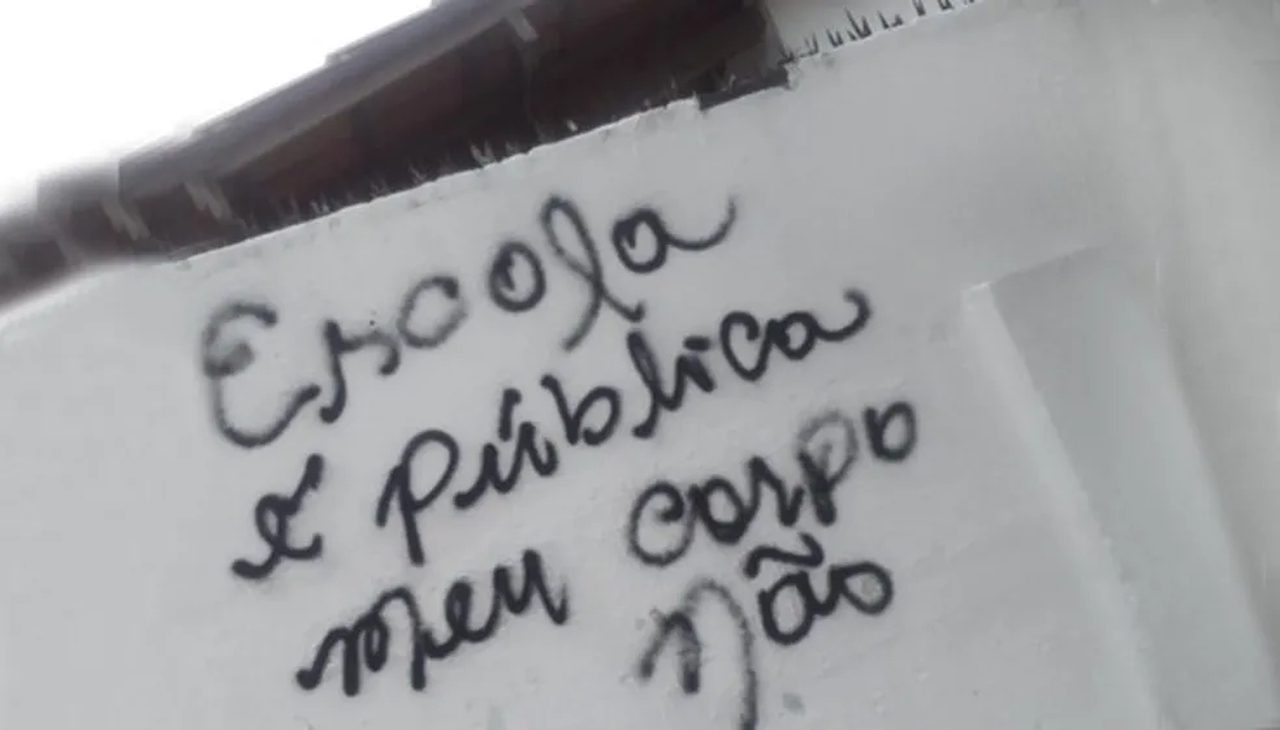 Escola
é pública
meu corpo
não